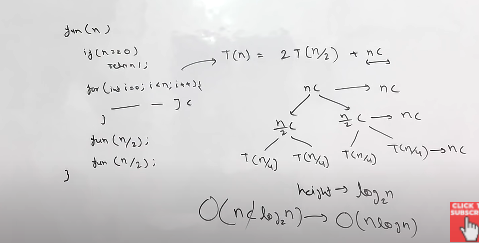 fun(n)
if(n==0)
return 1;
for(int i=0; i<n; i++){
— — ] c
}
fun(n/2);
fun(n/2);
}
T(n) = 2T(n/2) + nc
nc → nc
n/2 c n/2 c → nc
T(n/4) T(n/4) T(n/4) T(n/4) → nc
height → log₂n
O(n c log₂n) → O(n logn)
CLICK T
SUBSCR